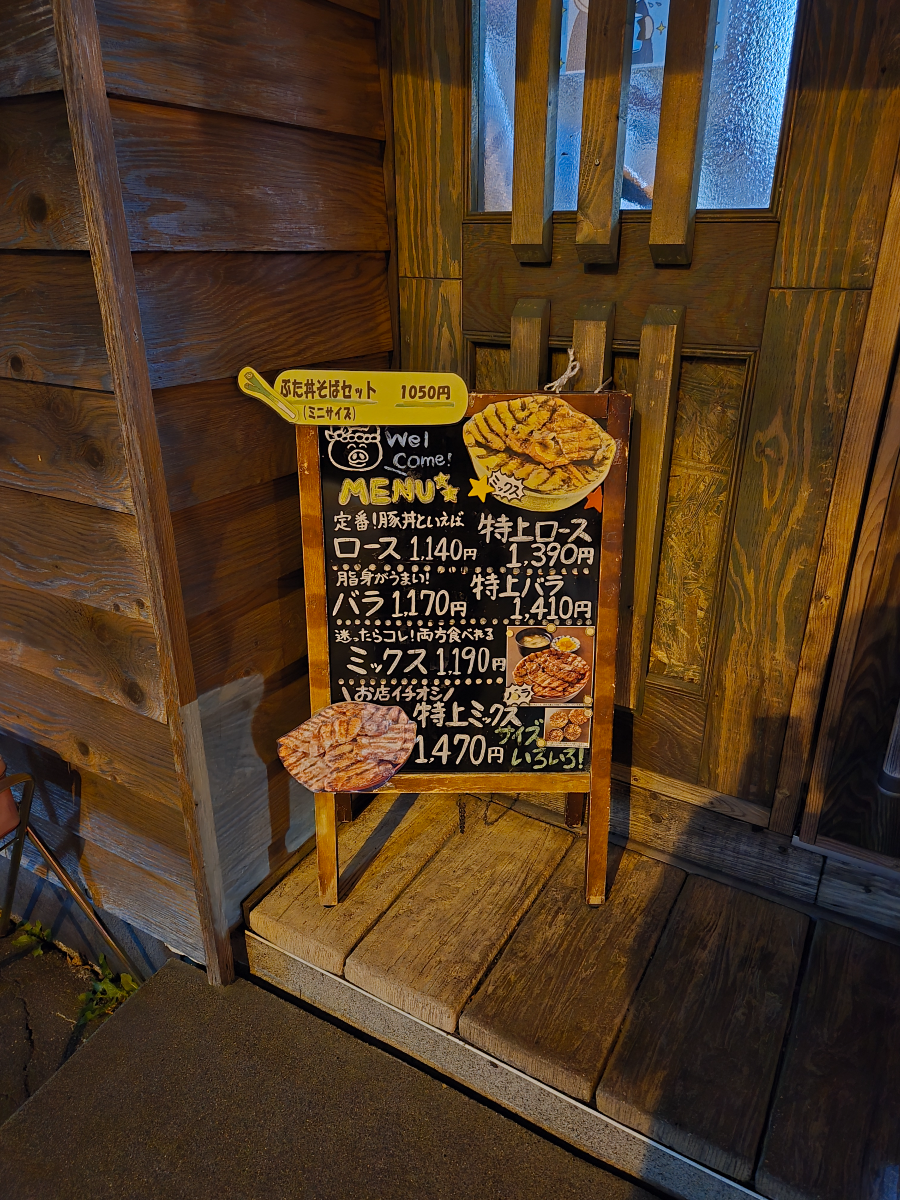 ぶた丼そばセット 1050円
(ミニサイズ)
Wel
Come!
MENU
ミックス
定番!豚丼といえば
ロース 1,140円
特上ロース
1,390円
脂身がうまい!
バラ 1,170円
特上バラ
1,410円
迷ったらコレ!両方食べれる
ミックス 1,190円
\お店イチオシ/
特上ミックス
1,470円
サイズ
いろいろ!